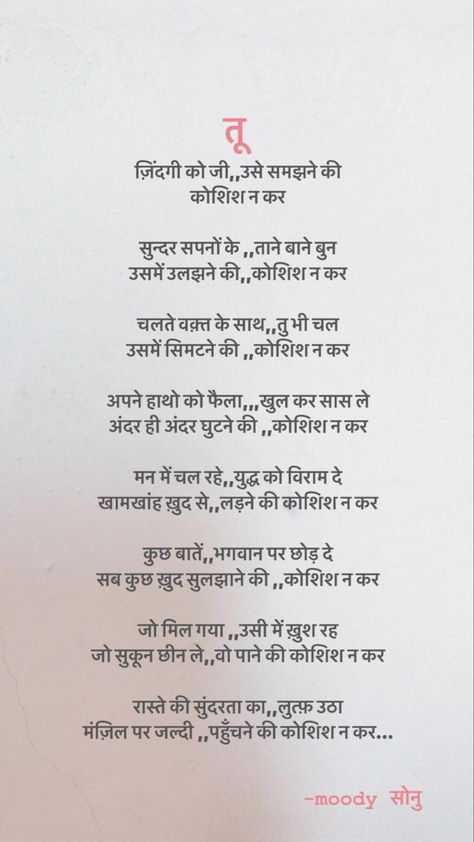 तू
ज़िंदगी को जी,,उसे समझने की
कोशिश न कर
सुन्दर सपनों के ,,ताने बाने बुन
उसमें उलझने की,,कोशिश न कर
चलते वक़्त के साथ,,तु भी चल
उसमें सिमटने की ,,कोशिश न कर
अपने हाथो को फैला,,,खुल कर सास ले
अंदर ही अंदर घुटने की ,,कोशिश न कर
मन में चल रहे,,युद्ध को विराम दे
खामखांह ख़ुद से,,लड़ने की कोशिश न कर
कुछ बातें,,भगवान पर छोड़ दे
सब कुछ ख़ुद सुलझाने की ,,कोशिश न कर
जो मिल गया ,,उसी में ख़ुश रह
जो सुकून छीन ले,,वो पाने की कोशिश न कर
रास्ते की सुंदरता का,,लुत्फ़ उठा
मंज़िल पर जल्दी ,,पहुँचने की कोशिश न कर...
-moody सोनु